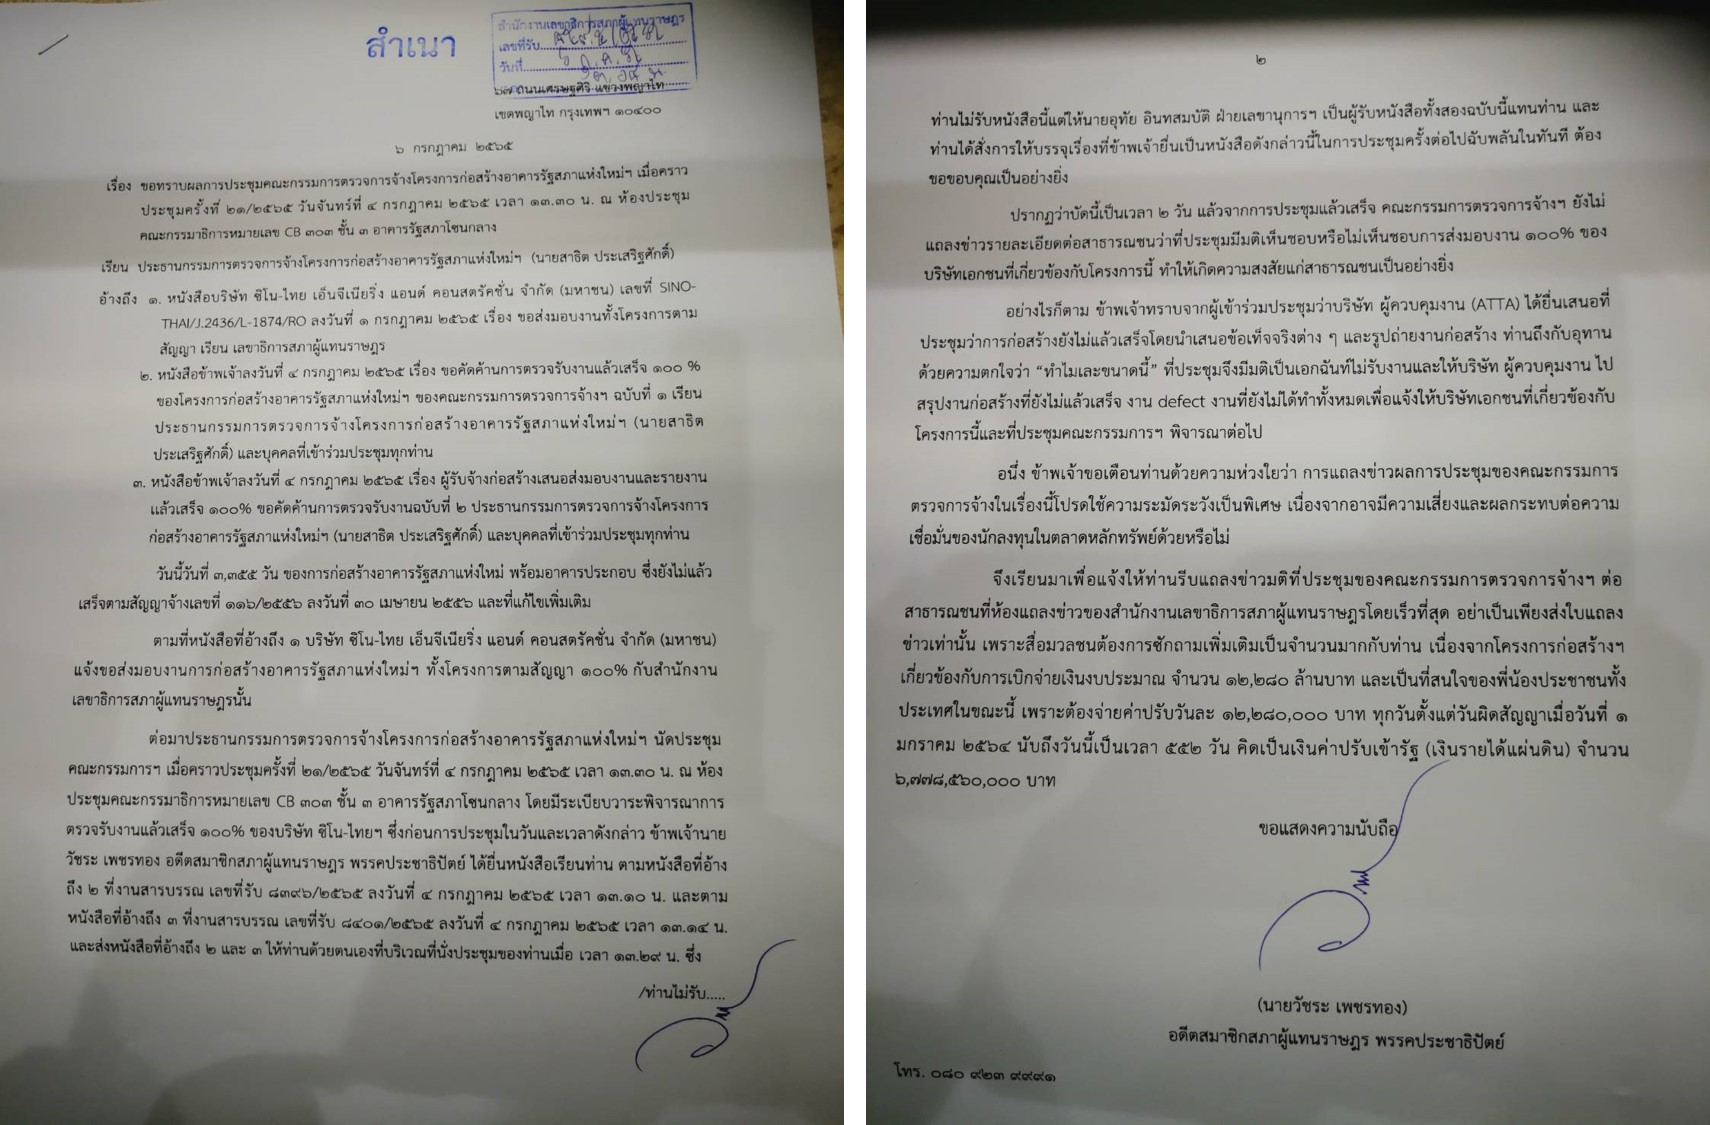 สำเนา
สำนักงานเลขาธิการสภาผู้แทนราษฎร
เลขที่รับ
วันที่
๖๗ ถนนเศรษฐศิริ แขวงพญาไท
เขตพญาไท กรุงเทพฯ ๑๐๔๐๐
๖ กรกฎาคม ๒๕๖๕
เรื่อง ขอทราบผลการประชุมคณะกรรมการตรวจการจ้างโครงการก่อสร้างอาคารรัฐสภาแห่งใหม่ฯ เมื่อคราว
ประชุมครั้งที่ ๒๑/๒๕๖๕ วันจันทร์ที่ ๔ กรกฎาคม ๒๕๖๕ เวลา ๑๓.๓๐ น. ณ ห้องประชุม
คณะกรรมาธิการหมายเลข CB ๓๐๓ ชั้น ๓ อาคารรัฐสภาโซนกลาง
เรียน ประธานกรรมการตรวจการจ้างโครงการก่อสร้างอาคารรัฐสภาแห่งใหม่ฯ (นายสาธิต ประเสริฐศักดิ์)
อ้างถึง ๑. หนังสือบริษัท ซิโน-ไทย เอ็นจีเนียริ่ง แอนด์ คอนสตรัคชั่น จำกัด (มหาชน) เลขที่ SINO-
THAI/J.2436/L-1874/RO ลงวันที่ ๑ กรกฎาคม ๒๕๖๕ เรื่อง ขอส่งมอบงานทั้งโครงการตาม
สัญญา เรียน เลขาธิการสภาผู้แทนราษฎร
๒. หนังสือข้าพเจ้าลงวันที่ ๔ กรกฎาคม ๒๕๖๕ เรื่อง ขอคัดค้านการตรวจรับงานแล้วเสร็จ ๑๐๐ %
ของโครงการก่อสร้างอาคารรัฐสภาแห่งใหม่ฯ ของคณะกรรมการตรวจการจ้างฯ ฉบับที่ ๑ เรียน
ประธานกรรมการตรวจการจ้างโครงการก่อสร้างอาคารรัฐสภาแห่งใหม่ฯ (นายสาธิต
ประเสริฐศักดิ์) และบุคคลที่เข้าร่วมประชุมทุกท่าน
๓. หนังสือข้าพเจ้าลงวันที่ ๔ กรกฎาคม ๒๕๖๕ เรื่อง ผู้รับจ้างก่อสร้างเสนอส่งมอบงานและรายงาน
แล้วเสร็จ ๑๐๐% ขอคัดค้านการตรวจรับงานฉบับที่ ๒ ประธานกรรมการตรวจการจ้างโครงการ
ก่อสร้างอาคารรัฐสภาแห่งใหม่ฯ (นายสาธิต ประเสริฐศักดิ์) และบุคคลที่เข้าร่วมประชุมทุกท่าน
วันนี้วันที่ ๓,๓๕๕ วัน ของการก่อสร้างอาคารรัฐสภาแห่งใหม่ พร้อมอาคารประกอบ ซึ่งยังไม่แล้ว
เสร็จตามสัญญาจ้างเลขที่ ๑๑๖/๒๕๕๖ ลงวันที่ ๓๐ เมษายน ๒๕๕๖ และที่แก้ไขเพิ่มเติม
ตามที่หนังสือที่อ้างถึง ๑ บริษัท ซิโน-ไทย เอ็นจีเนียริ่ง แอนด์ คอนสตรัคชั่น จำกัด (มหาชน)
แจ้งขอส่งมอบงานการก่อสร้างอาคารรัฐสภาแห่งใหม่ฯ ทั้งโครงการตามสัญญา ๑๐๐% กับสำนักงาน
เลขาธิการสภาผู้แทนราษฎรนั้น
ต่อมาประธานกรรมการตรวจการจ้างโครงการก่อสร้างอาคารรัฐสภาแห่งใหม่ฯ นัดประชุม
คณะกรรมการฯ เมื่อคราวประชุมครั้งที่ ๒๑/๒๕๖๕ วันจันทร์ที่ ๔ กรกฎาคม ๒๕๖๕ เวลา ๑๓.๓๐ น. ณ ห้อง
ประชุมคณะกรรมาธิการหมายเลข CB ๓๐๓ ชั้น ๓ อาคารรัฐสภาโซนกลาง โดยมีระเบียบวาระพิจารณาการ
ตรวจรับงานแล้วเสร็จ ๑๐๐% ของบริษัท ซิโน-ไทยฯ ซึ่งก่อนการประชุมในวันและเวลาดังกล่าว ข้าพเจ้านาย
วัชระ เพชรทอง อดีตสมาชิกสภาผู้แทนราษฎร พรรคประชาธิปัตย์ ได้ยื่นหนังสือเรียนท่าน ตามหนังสือที่อ้าง
ถึง ๒ ที่งานสารบรรณ เลขที่รับ ๘๓๙๖/๒๕๖๕ ลงวันที่ ๔ กรกฎาคม ๒๕๖๕ เวลา ๑๓.๑๐ น. และตาม
หนังสือที่อ้างถึง ๓ ที่งานสารบรรณ เลขที่รับ ๘๔๐๑/๒๕๖๕ ลงวันที่ ๔ กรกฎาคม ๒๕๖๕ เวลา ๑๓.๑๔ น.
และส่งหนังสือที่อ้างถึง ๒ และ ๓ ให้ท่านด้วยตนเองที่บริเวณที่นั่งประชุมของท่านเมื่อ เวลา ๑๓.๒๙ น. ซึ่ง
/ท่านไม่รับ.....
๒
ท่านไม่รับหนังสือนี้แต่ให้นายอุทัย อินทสมบัติ ฝ่ายเลขานุการฯ เป็นผู้รับหนังสือทั้งสองฉบับนี้แทนท่าน และ
ท่านได้สั่งการให้บรรจุเรื่องที่ข้าพเจ้ายื่นเป็นหนังสือดังกล่าวนี้ในการประชุมครั้งต่อไปฉับพลันในทันที ต้อง
ขอขอบคุณเป็นอย่างยิ่ง
ปรากฏว่าบัดนี้เป็นเวลา ๒ วัน แล้วจากการประชุมแล้วเสร็จ คณะกรรมการตรวจการจ้างฯ ยังไม่
แถลงข่าวรายละเอียดต่อสาธารณชนว่าที่ประชุมมีมติเห็นชอบหรือไม่เห็นชอบการส่งมอบงาน ๑๐๐% ของ
บริษัทเอกชนที่เกี่ยวข้องกับโครงการนี้ ทำให้เกิดความสงสัยแก่สาธารณชนเป็นอย่างยิ่ง
อย่างไรก็ตาม ข้าพเจ้าทราบจากผู้เข้าร่วมประชุมว่าบริษัท ผู้ควบคุมงาน (ATTA) ได้ยื่นเสนอที่
ประชุมว่าการก่อสร้างยังไม่แล้วเสร็จโดยนำเสนอข้อเท็จจริงต่าง ๆ และรูปถ่ายงานก่อสร้าง ท่านถึงกับอุทาน
ด้วยความตกใจว่า “ทำไมเละขนาดนี้” ที่ประชุมจึงมีมติเป็นเอกฉันท์ไม่รับงานและให้บริษัท ผู้ควบคุมงาน ไป
สรุปงานก่อสร้างที่ยังไม่แล้วเสร็จ งาน defect งานที่ยังไม่ได้ทำทั้งหมดเพื่อแจ้งให้บริษัทเอกชนที่เกี่ยวข้องกับ
โครงการนี้และที่ประชุมคณะกรรมการฯ พิจารณาต่อไป
อนึ่ง ข้าพเจ้าขอเตือนท่านด้วยความห่วงใยว่า การแถลงข่าวผลการประชุมของคณะกรรมการ
ตรวจการจ้างในเรื่องนี้โปรดใช้ความระมัดระวังเป็นพิเศษ เนื่องจากอาจมีความเสี่ยงและผลกระทบต่อความ
เชื่อมั่นของนักลงทุนในตลาดหลักทรัพย์ด้วยหรือไม่
จึงเรียนมาเพื่อแจ้งให้ท่านรีบแถลงข่าวมติที่ประชุมของคณะกรรมการตรวจการจ้างฯ ต่อ
สาธารณชนที่ห้องแถลงข่าวของสำนักงานเลขาธิการสภาผู้แทนราษฎรโดยเร็วที่สุด อย่าเป็นเพียงส่งใบแถลง
ข่าวเท่านั้น เพราะสื่อมวลชนต้องการซักถามเพิ่มเติมเป็นจำนวนมากกับท่าน เนื่องจากโครงการก่อสร้างฯ
เกี่ยวข้องกับการเบิกจ่ายเงินงบประมาณ จำนวน ๑๒,๒๘๐ ล้านบาท และเป็นที่สนใจของพี่น้องประชาชนทั้ง
ประเทศในขณะนี้ เพราะต้องจ่ายค่าปรับวันละ ๑๒,๒๘๐,๐๐๐ บาท ทุกวันตั้งแต่วันผิดสัญญาเมื่อวันที่ ๑
มกราคม ๒๕๖๔ นับถึงวันนี้เป็นเวลา ๕๕๒ วัน คิดเป็นเงินค่าปรับเข้ารัฐ (เงินรายได้แผ่นดิน) จำนวน
๖,๗๗๘,๕๖๐,๐๐๐ บาท
ขอแสดงความนับถือ
(นายวัชระ เพชรทอง)
อดีตสมาชิกสภาผู้แทนราษฎร พรรคประชาธิปัตย์
โทร. ๐๘๐ ๙๒๓ ๙๙๙๑